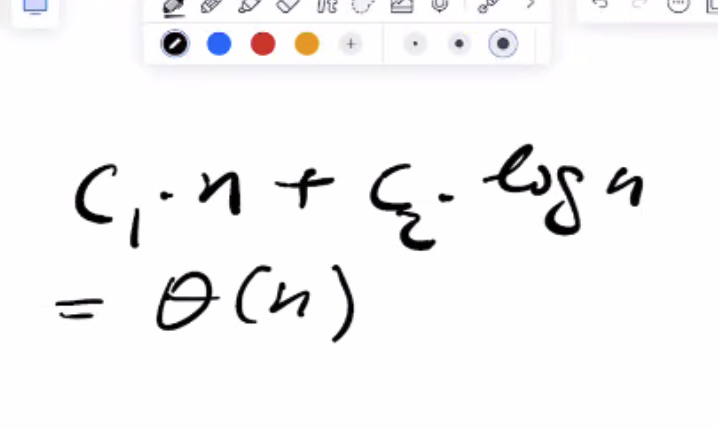 C₁·n + C₂·log n
= θ(n)